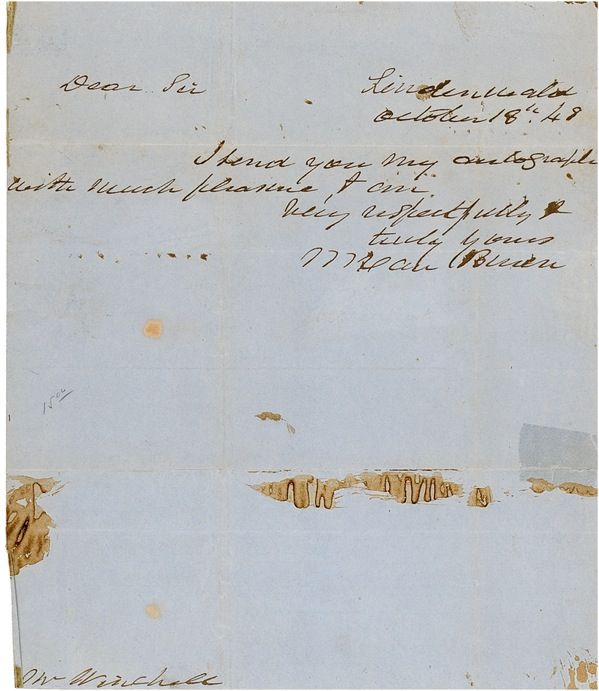 Dear Sir
Lindenwald
October 18th. 48
I send you my autograph
with much pleasure, & am,
Very respectfully &
truly yours
M Van Buren
15 00
Mr Winchell